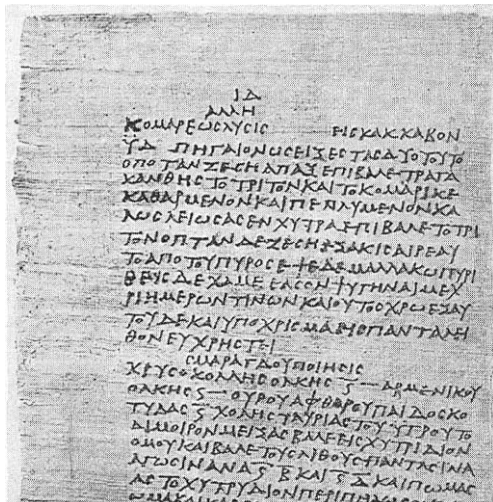 ΙΔ
ΑΛΛΗ
ΚΟΜΑΡΕΩϹ ΛΥϹΙϹ ΕΙϹ ΚΑΚΚΑΒΟΝ
ΫΔ ΠΗΓΑΙΟΝ ΩϹΕΙ ΞΕϹΤΑϹ ΔΥΟ ΤΟΥΤΟ
ΟΠΟΤΑΝ ΖΕϹΗ ΑΠΑΞ ΕΠΙΒΑΛΕ ΤΡΑΓΑ
ΧΑΝΘΗϹ ΤΟ ΤΡΙΤΟΝ ΚΑΙ ΤΟ ΚΟΜΑΡΙ ΚΕ
ΚΑΘΑΡΜΕΝΟΝ ΚΑΙ ΠΕΠΛΥΜΕΝΟΝ ΚΑ
ΛΩϹ ΛΕΙΩϹΑϹ ΕΝ ΧΥΤΡΑ ΕΠΙΒΑΛΕ ΤΟ ΤΡΙ
ΤΟΝ ΟΠΤΑΝ ΔΕ ΖΕϹΗ ΕΞΑΚΙϹ ΑΙΡΕ ΑΥ
ΤΟ ΑΠΟ ΤΟΥ ΠΥΡΟϹ ΕΨΕ ΔΕ ΜΑΛΛΑΚΩ ΠΥΡΙ
ΘΕΥϹ ΔΕ ΧΑΜΕ ΕΑϹΟΝ ΨΥΓΗΝΑΙ ΜΕΧ
ΡΙ ΗΜΕΡΩΝ ΤΙΝΩΝ ΚΑΙ ΟΥΤΟϹ ΧΡΩ ΕϹ ΑΥ
ΤΟΥ ΔΕ ΚΑΙ ΥΠΟΧΡΙϹΜΑ ΠΑΝΤΑ ΛΕΙ
ΘΟΝ ΕΥΧΡΗϹΤΕΙ
ϹΜΑΡΑΓΔΟΥ ΠΟΙΗϹΙϹ
ΧΡΥϹΟΚΟΛΛΗϹ ΟΛΚΗϹ Ϛ — ΑΡΜΕΝΙΚΟΥ
ΟΛΚΗϹ Ϛ — ΟΥΡΟΥ ΑΦΘΟΡΟΥ ΠΑΙΔΟϹ ΚΟ
ΤΥΛΑϹ Ϛ ΧΟΛΗϹ ΤΑΥΡΙΑϹ ΤΟΥ ΥΓΡΟΥ ΤΟ
ΔΙΜΟΙΡΟΝ ΜΕΙΞΑϹ ΒΑΛΕ ΕΙϹ ΧΥΤΡΙΔΙΟΝ
ΟΜΟΥ ΚΑΙ ΒΑΛΕ ΤΟΥϹ ΛΙΘΟΥϹ ΠΑΝΤΑϹ ΙΝΑ
ΑΓΩϹΙΝ ΑΝΑ Ϛ Β ΚΑΙ Ϛ Δ ΚΑΙ ΠΩΜΑϹ
ΑϹ ΤΟ ΧΥΤΡΥΔΙΟΝ